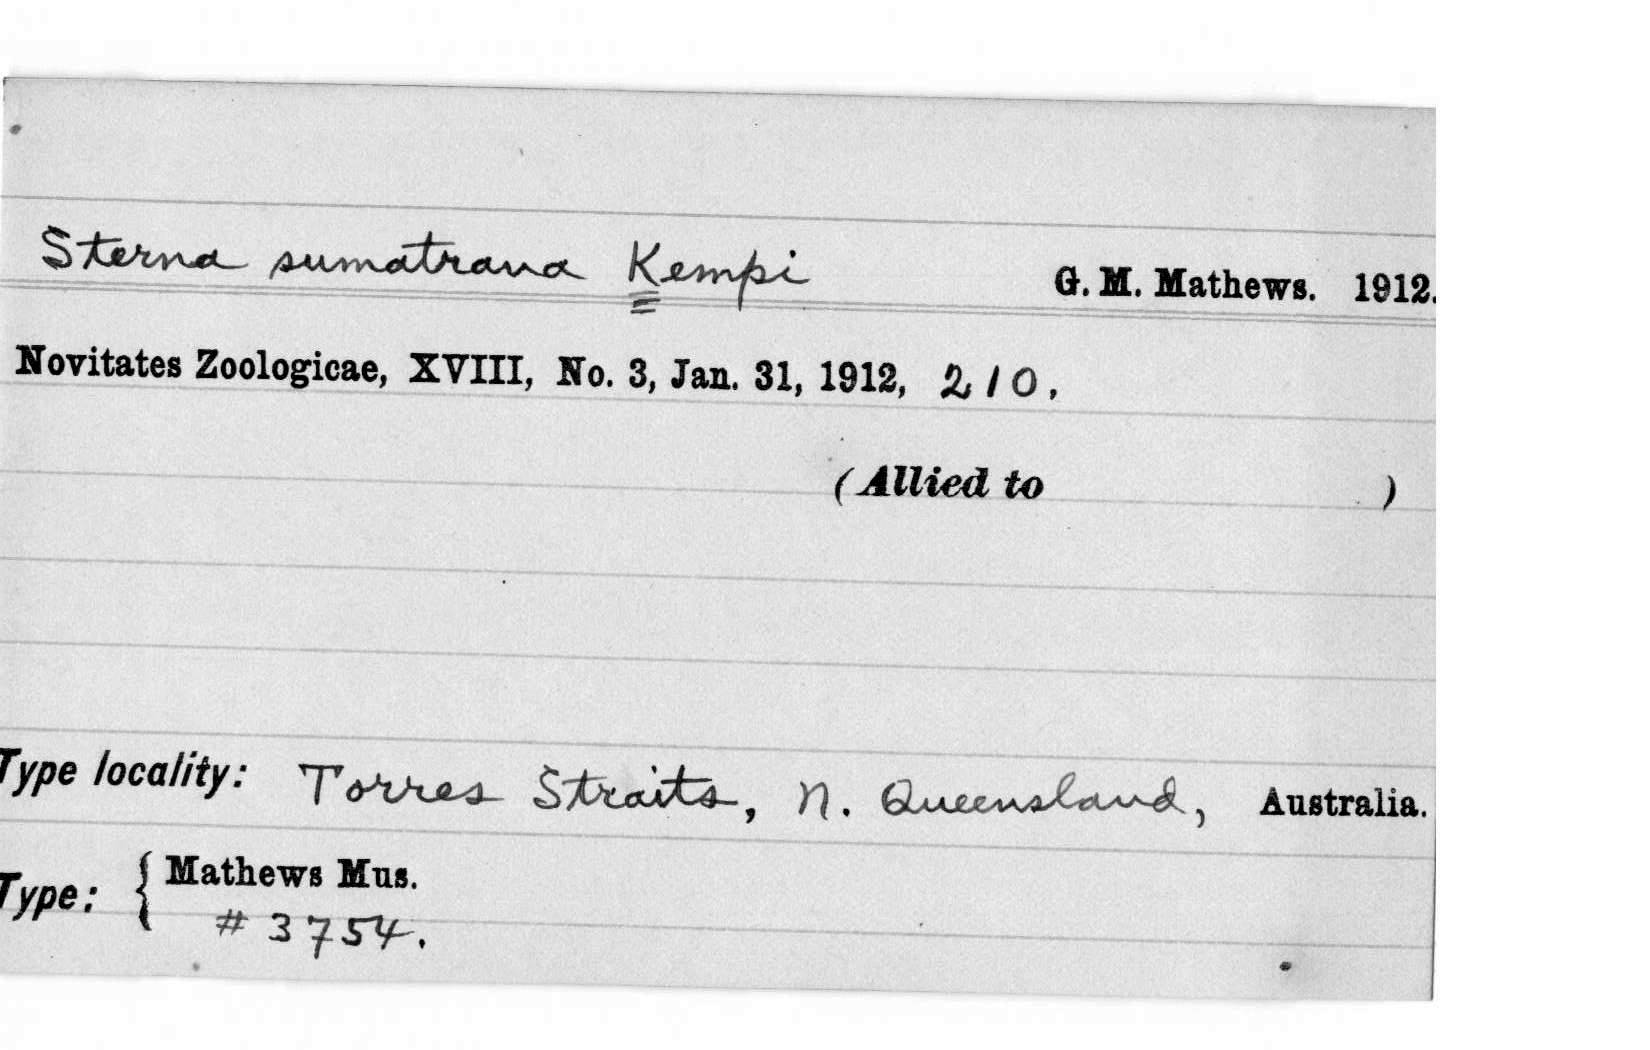 Sterna sumatrana Kempi G. M. Mathews. 1912.
Novitates Zoologicae, XVIII, No. 3, Jan. 31, 1912, 210.
(Allied to )
Type locality: Torres Straits, N. Queensland, Australia.
Type: { Mathews Mus.
# 3754.